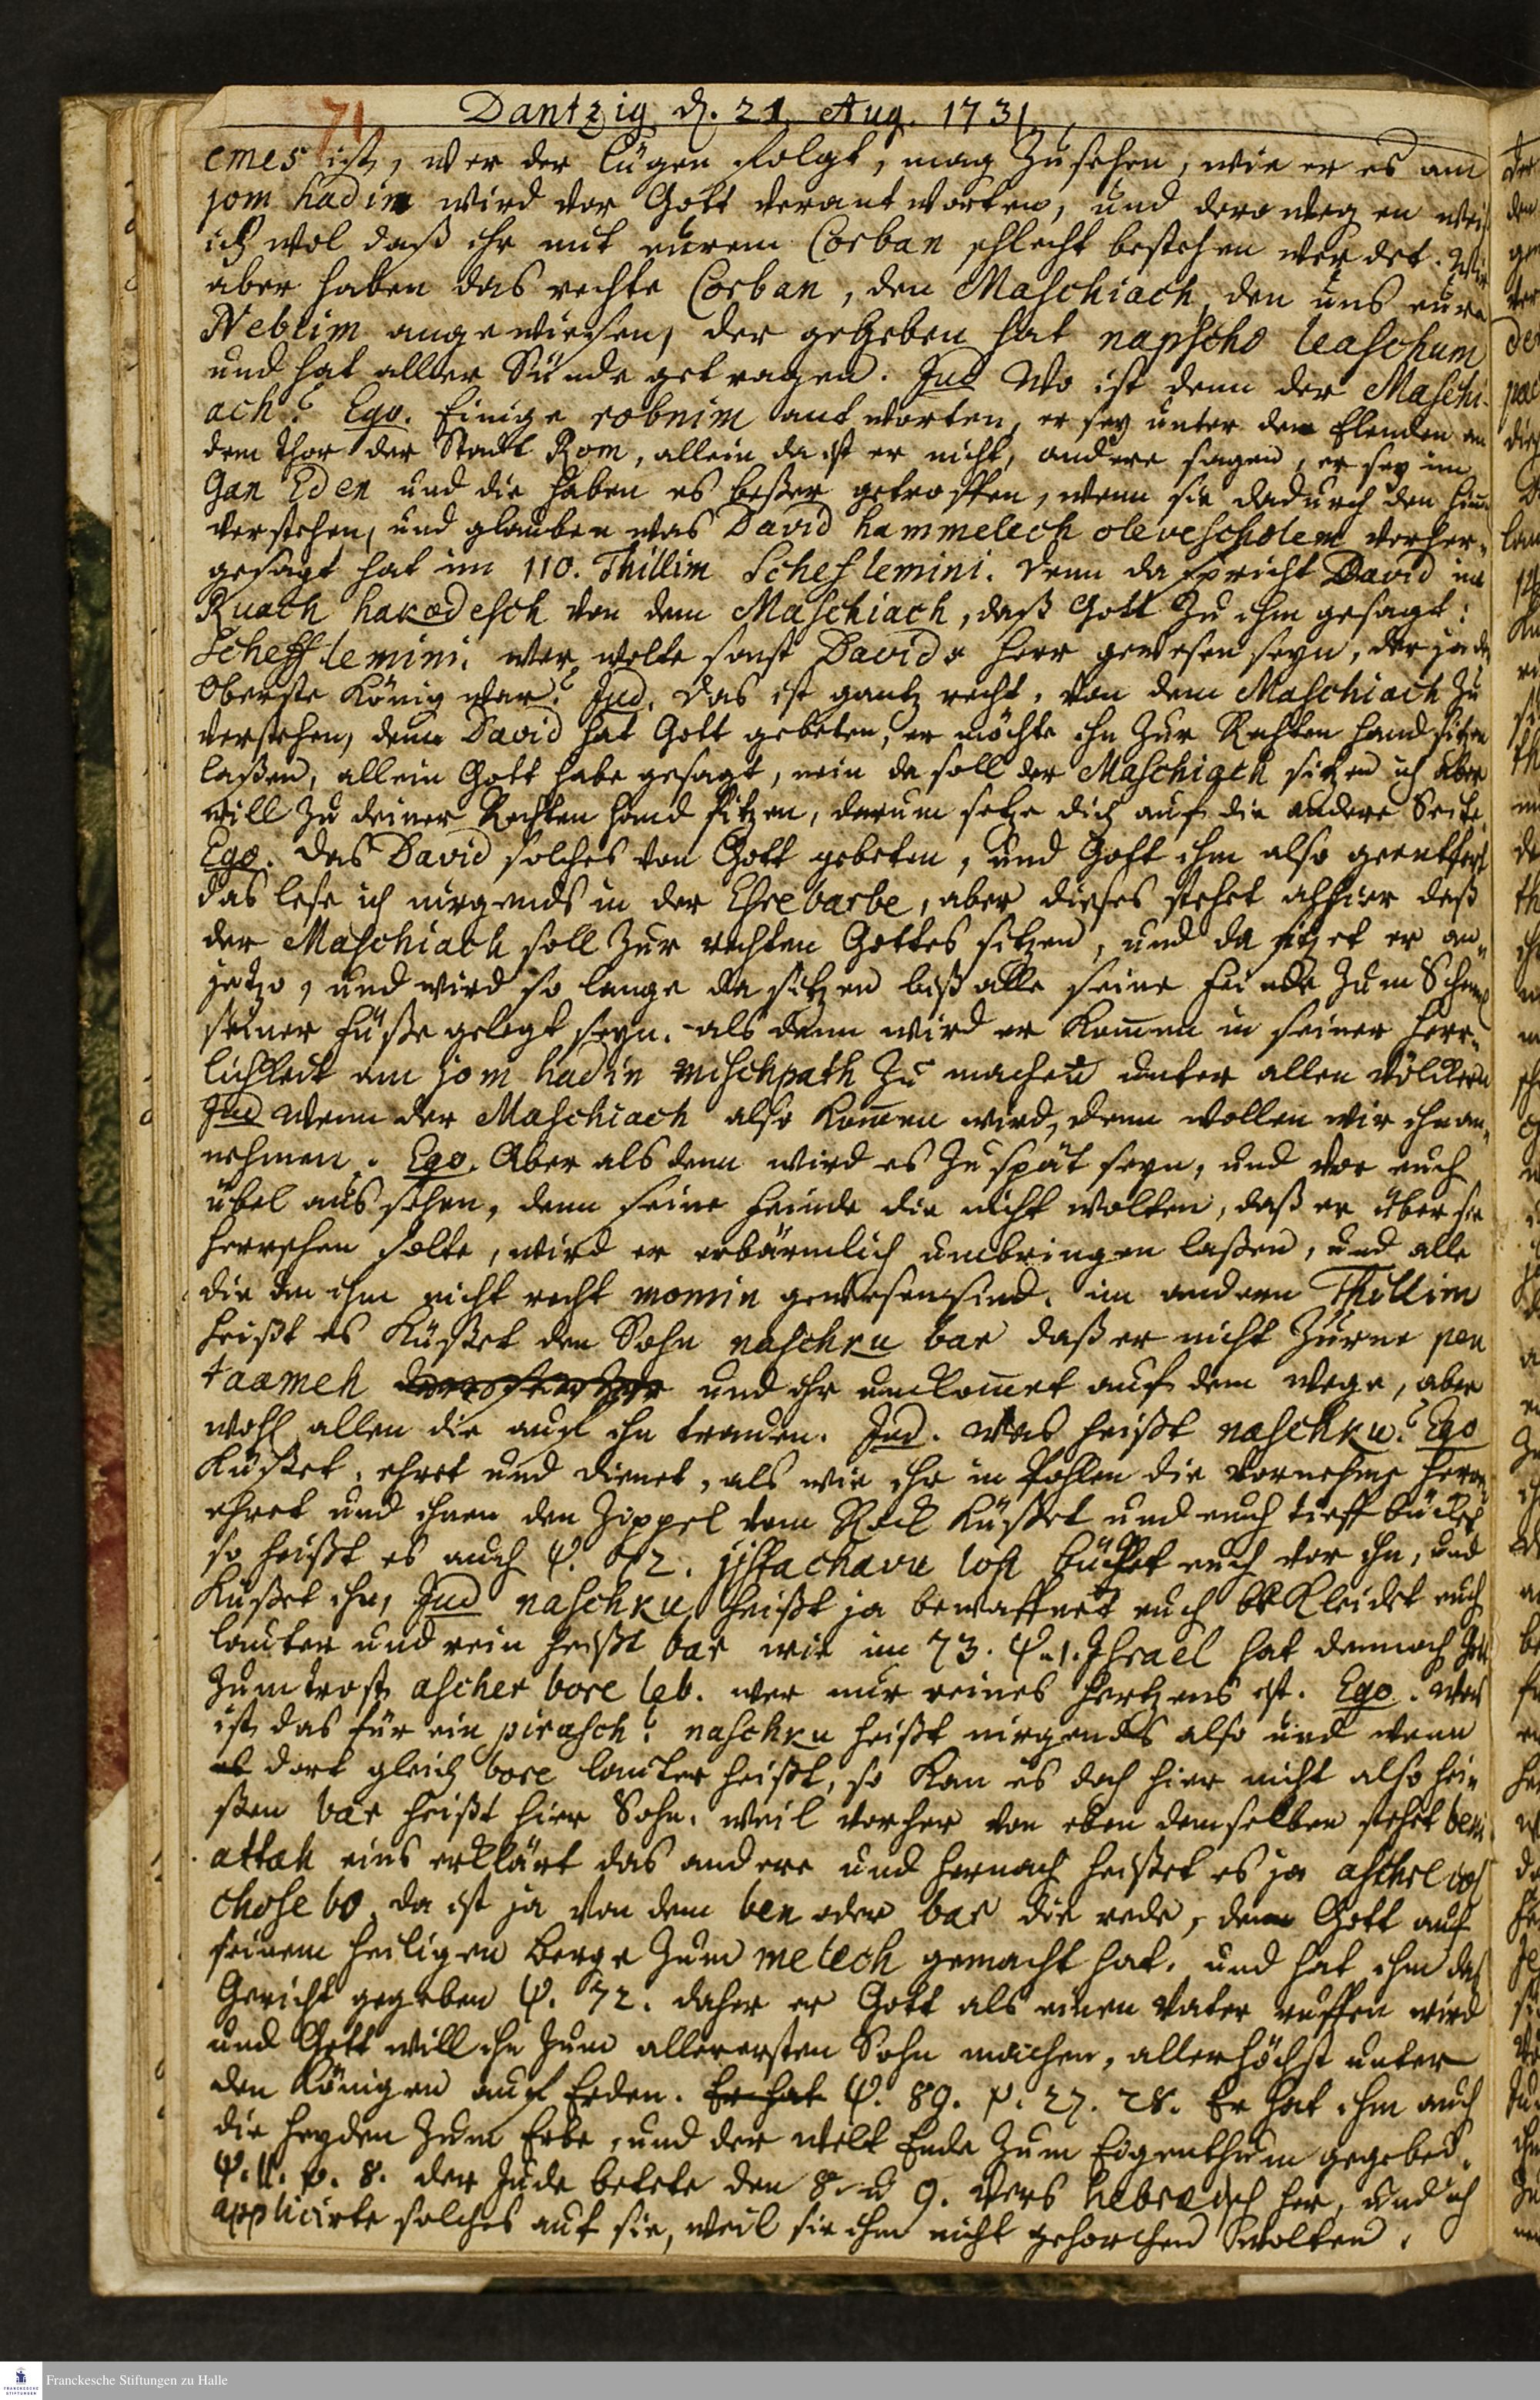 71 Dantzig d. 21. Aug. 1731
emes ist, wer der Lügen folgt, mag zusehen, wie er es am
jom hadin wird vor Gott verantworten, und deroweg en weiß
ich wol daß ihr mit eurem Corban schlecht bestehen werdet. Wir
aber haben das rechte Corban, den Maschiach, den uns eure
Nebiim angewiesen, der gegeben hat napscho leaschum
und hat aller Sünde getragen. Jud Wo ist denn der Maschi-
ach? Ego. Einige robnim antworten, er sey unter den Elenden an
dem Thor der Stadt Rom, allein da ist er nicht, andere sagen, er sey im
Gan Eden und die haben es beßer getroffen, wenn sie dadurch den
verstehen, und glauben was David hammelech olevescholem vorher-
gesagt hat im 110. Thillim Schef lemini. Denn da spricht David im
Ruach hakodesch von dem Maschiach, daß Gott zu ihm gesagt:
Scheff lemini. wer wolte sonst Davids Herr gewesen seyn, der ja der
Oberste König war? Jud. Das ist gantz recht, von dem Maschiach zu
verstehen, denn David hat Gott gebeten, er möchte ihn zur Rechten Hand sitzen
laßen, allein Gott habe gesagt, nein da soll der Maschiach sitzen ich aber
will zu deiner Rechten Hand sitzen, darum setze dich auf die andere Seite.
Ego. Das David solches von Gott gebeten, und Gott ihm also geantwort
das lese ich nirgends in der Esrebarbe, aber dieses stehet allhier daß
der Maschiach soll zur rechten Gottes sitzen, und da sitzet er an-
jetzo, und wird so lange da sitzen biß alle seine Feinde zum Schemel
seiner Füße gelegt seyn. als denn wird er kommen in seiner Herr-
lichkeit am jom hadin mischpath zu machen unter allen Völckern
Jud Wenn der Maschiach also kommen wird, denn wollen wir ihn an-
nehmen. Ego. Aber als denn wird es zu spät seyn, und vor euch
übel aussehen, denn seine Feinde die nicht wolten, daß er über sie
herrschen solte, wird er erbärmlich umbringen laßen, und alle
die an ihm nicht recht momin gewesen sind. im andern Thillim
heißt es Küßet den Sohn naschku bar daß er nicht zürne pen
taameh und ihr umkommet auf dem Wege, aber
wohl allen die auf ihn trauen. Jud. Was heißt naschku? Ego
Küßet, ehret und dienet, als wie ihr in Pohlen die vornehme Herrn
ehret und ihnen den Zippel vom Rock küßet und euch tieff bücket
so heißt es auch ψ. 72. jistachavu loh bücket euch vor ihn, und
Küßet ihn, Jud naschku, heißt ja bewaffnet euch bekleidet euch
lauter und rein heißt bar wie im 73. ψ. 1. Israel hat dennoch Gott
zum trost ascher bore leb. wer nur reines Hertzens ist. Ego. Was
ist das für ein pirusch? naschku heißt nirgends also und wenn
es dort gleich bore lauter heißt, so kan es doch hier nicht also hei-
ßen bar heißt hier Sohn. weil vorher von eben demselben stehet beni
attah eins erklärt das andere und hernach heißet es ja aschre col
chose bo, da ist ja von dem ben oder bar die rede, den Gott auf
seinem heiligen Berge zum melech gemacht hat. und hat ihm das
Gericht gegeben ψ. 72. daher er Gott als einen Vater ruffen wird
und Gott will ihn zum allerersten Sohn machen, allerhöchst unter
den Königen auf Erden. Er hat ψ. 89. v. 27. 28. Er hat ihm auch
die Heyden zum Erbe, und der Welt Ende zum Eigenthum gegeben.
ψ. II. v. 8. der Jude betete den 8. u 9. Vers hebræisch her, und ich
applicirte solches auf sie, weil sie ihm nicht gehorchen wolten.
Franckesche Stiftungen zu Halle